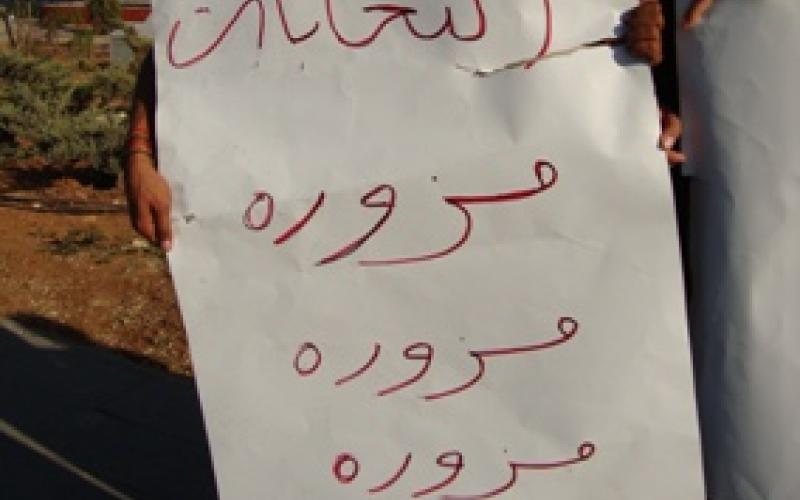 انتخابات
مزوره
مزوره
مزوره